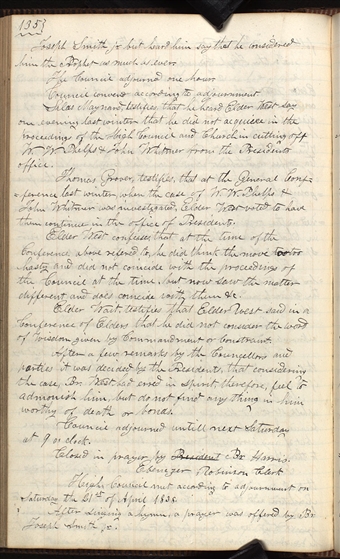 135
Joseph Smith jr. but heard him say that he considered
him the Prophet as much as ever.
The Council adjourned one hour.
Council convened according to adjournment
Silas Maynard, testifies, that he heard Elder West say
one evening last winter that he did not acquiece in the
proceedings of the High Council and Church in cutting off
W. W. Phelps & John Whitmer from the Presidents
office.
Thomas Grover, testifies, that at the General Conf-
erence last winter, when the case of W. W. Phelps &
John Whitmer was investigated, Elder West voted to have
them continue in the office of Presidents.
Elder West confesses that at the time of the
Conference above refered to, he did think the move too
hasty and did not coincide with the proceedings of
the Council at the time, but now saw the matter
different and does coincide with them &c.
Elder Wait testifies that Elder West said in a
Conference of Elders that he did not consider the word
of wisdom given by Commandment or Constraint.
After a few remarks by the Counsellors and
parties it was decided by the Presidents, that considering
the case, Br. West had erred in spirit therefore, feel to
admonish him, but do not find any thing in him
worthy of death or bonds.
Council adjourned untill next Saturday
at 9 o clock.
Closed in prayer by President Br Harris.
Ebenezer Robinson Clerk
High Council met according to adjournment on
Saturday the 21st of April 1838.
After singing a hymn, a prayer was offered by Br.
Joseph Smith jr.